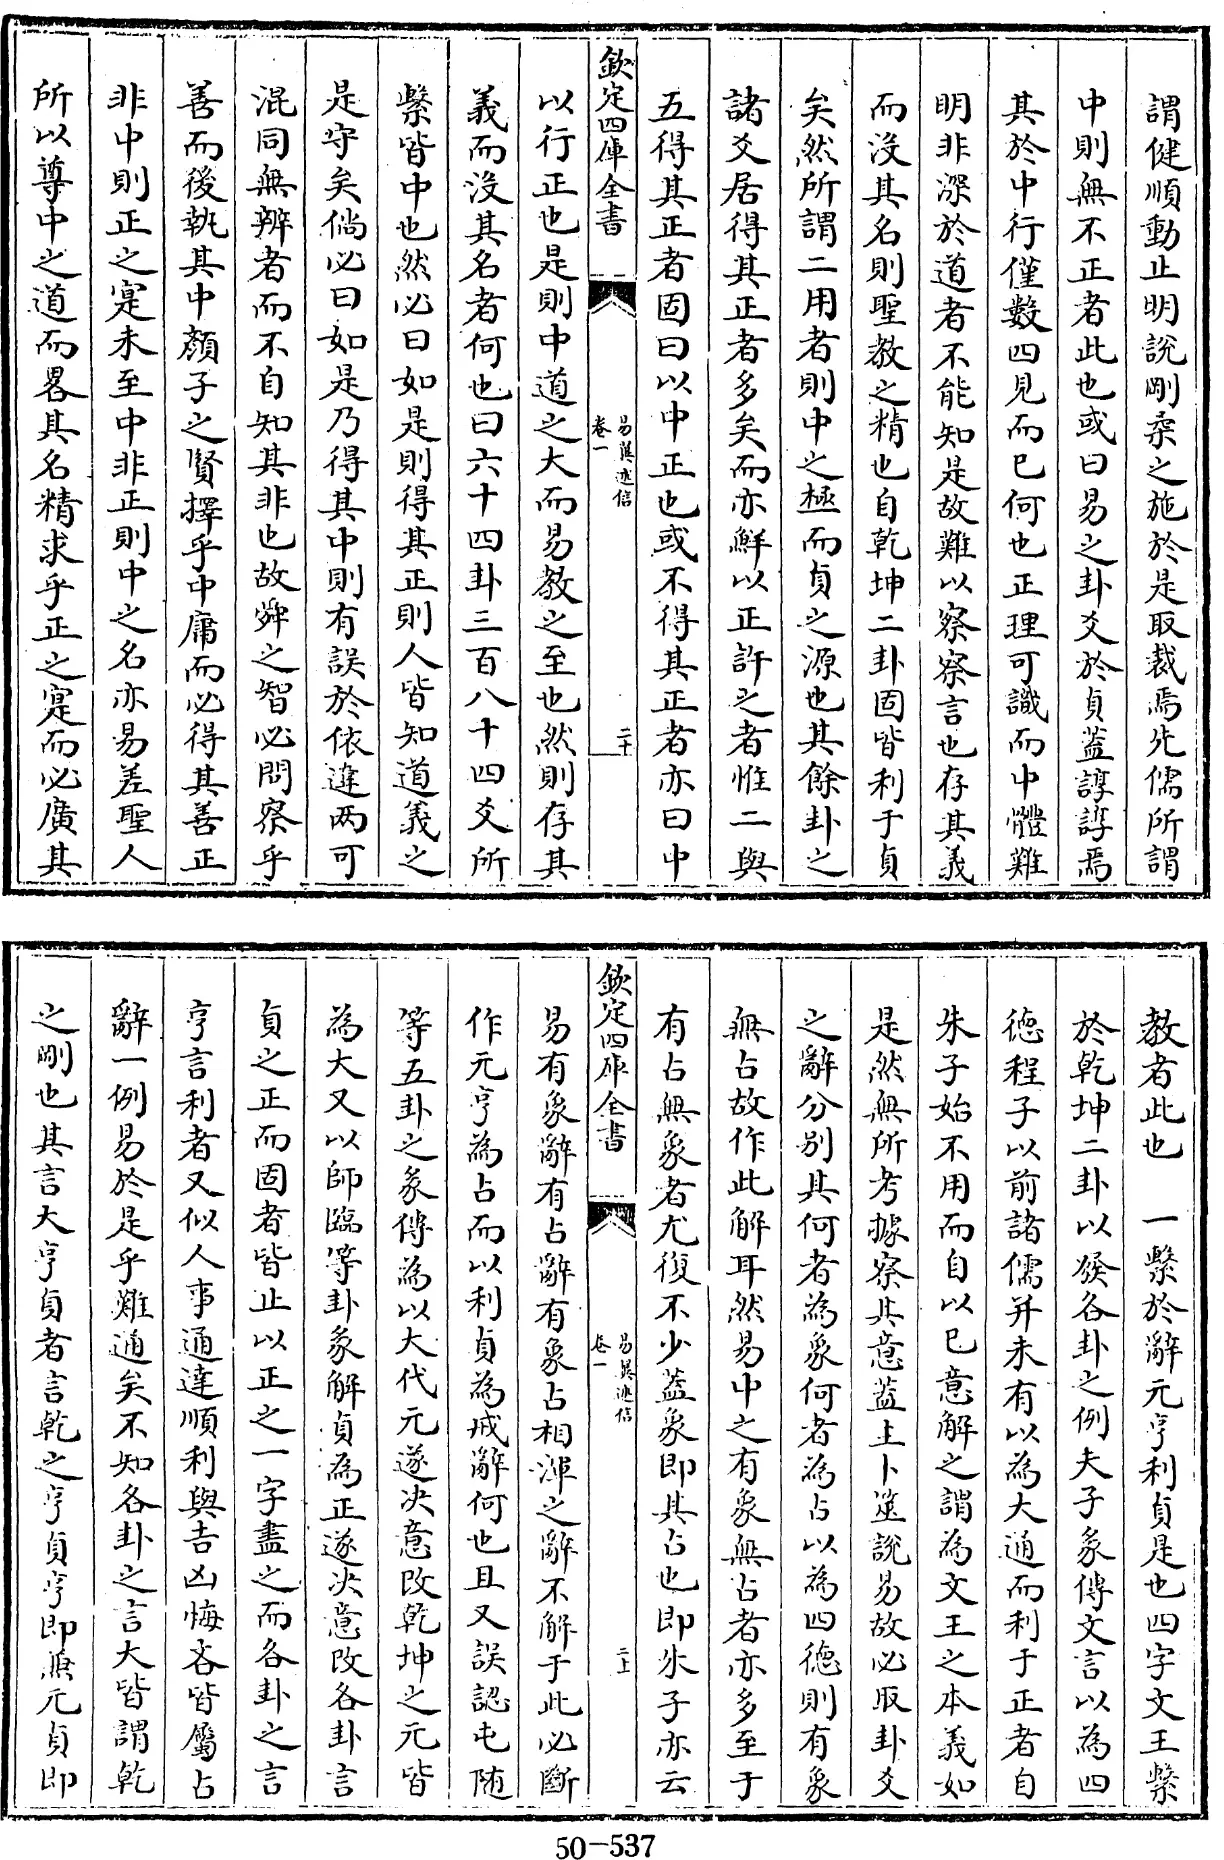 謂健順動止明說剛柔之施於是取裁焉先儒所謂
中則無不正者此也或曰易之卦爻於貞蓋諄諄焉
其於中行僅數四見而已何也正理可識而中體難
明非深於道者不能知是故難以察察言也存其義
而沒其名則聖教之精也自乾坤二卦固皆利于貞
矣然所謂二用者則中之極而貞之源也其餘卦之
諸爻居得其正者多矣而亦鮮以正許之者惟二與
五得其正者固曰以中正也或不得其正者亦曰中
欽定四庫全書
易翼述信
卷一
二十
以行正也是則中道之大而易教之至也然則存其
義而沒其名者何也曰六十四卦三百八十四爻所
繫皆中也然必曰如是則得其正則人皆知道義之
是守矣倘必曰如是乃得其中則有誤於依違兩可
混同無辨者而不自知其非也故舜之智必問察乎
善而後執其中顏子之賢擇乎中庸而必得其善正
非中則正之寔未至中非正則中之名亦易差聖人
所以尊中之道而畧其名精求乎正之寔而必廣其
教者此也　一繫於辭元亨利貞是也四字文王繫
於乾坤二卦以發各卦之例夫子彖傳文言以為四
德程子以前諸儒并未有以為大通而利于正者自
朱子始不用而自以已意解之謂為文王之本義如
是然無所考據察其意蓋主卜筮說易故必取卦爻
之辭分別其何者為象何者為占以為四德則有象
無占故作此解耳然易中之有象無占者亦多至于
有占無象者尤復不少蓋象即其占也即朱子亦云
欽定四庫全書
易翼述信
卷一
二十
易有象辭有占辭有象占相渾之辭不解于此必斷
作元亨為占而以利貞為戒辭何也且又誤認屯隨
等五卦之彖傳為以大代元遂決意改乾坤之元皆
為大又以師臨等卦彖解貞為正遂決意改各卦言
貞之正而固者皆止以正之一字盡之而各卦之言
亨言利者又似人事通達順利與吉凶悔吝皆屬占
辭一例易於是乎難通矣不知各卦之言大皆謂乾
之剛也其言大亨貞者言乾之亨貞亨即兼元貞即
50-537